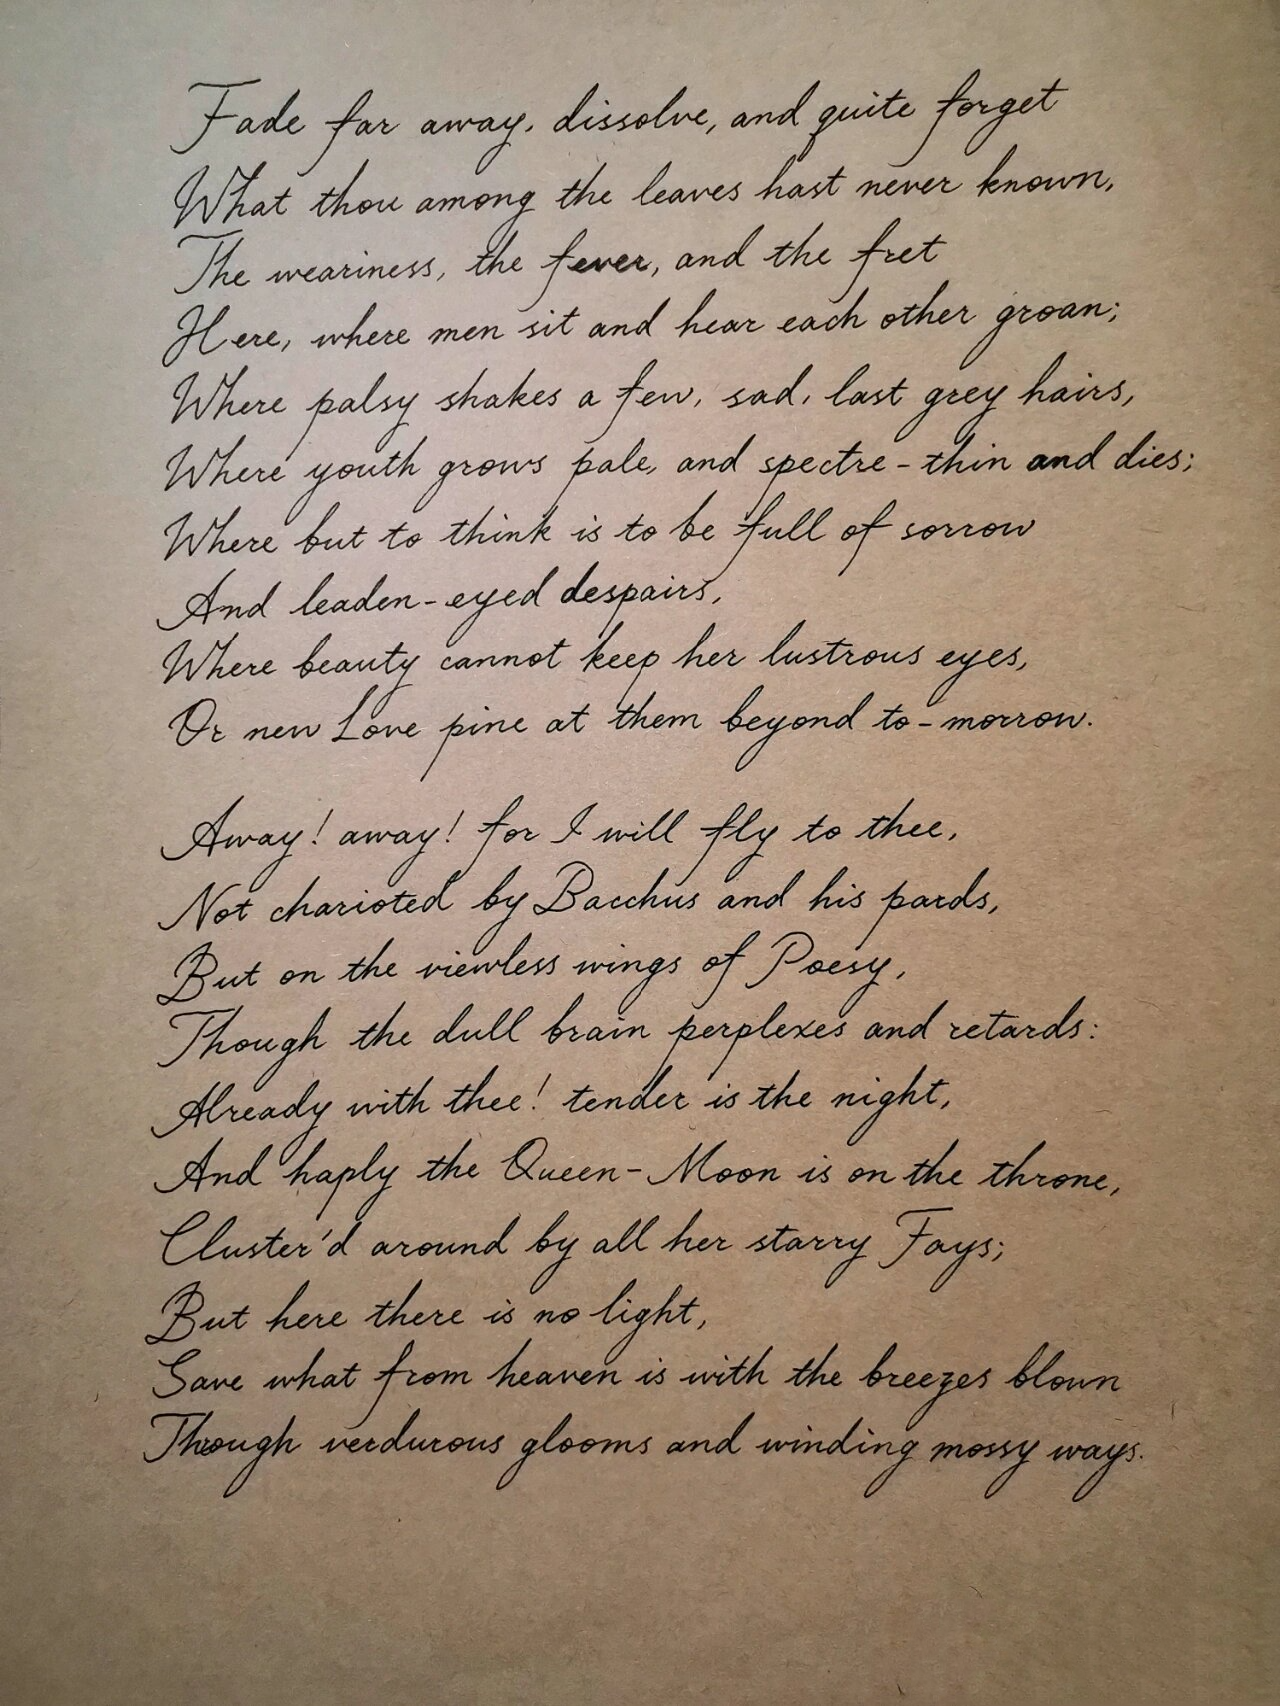 Fade far away, dissolve, and quite forget
What thou among the leaves hast never known,
The weariness, the fever, and the fret
Here, where men sit and hear each other groan;
Where palsy shakes a few, sad, last grey hairs,
Where youth grows pale, and spectre-thin and dies;
Where but to think is to be full of sorrow
And leaden-eyed despairs,
Where beauty cannot keep her lustrous eyes,
Or new Love pine at them beyond to-morrow.
Away! away! for I will fly to thee,
Not charioted by Bacchus and his pards,
But on the viewless wings of Poesy,
Though the dull brain perplexes and retards:
Already with thee! tender is the night,
And haply the Queen-Moon is on the throne,
Cluster'd around by all her starry Fays;
But here there is no light,
Save what from heaven is with the breezes blown
Through verdurous glooms and winding mossy ways.